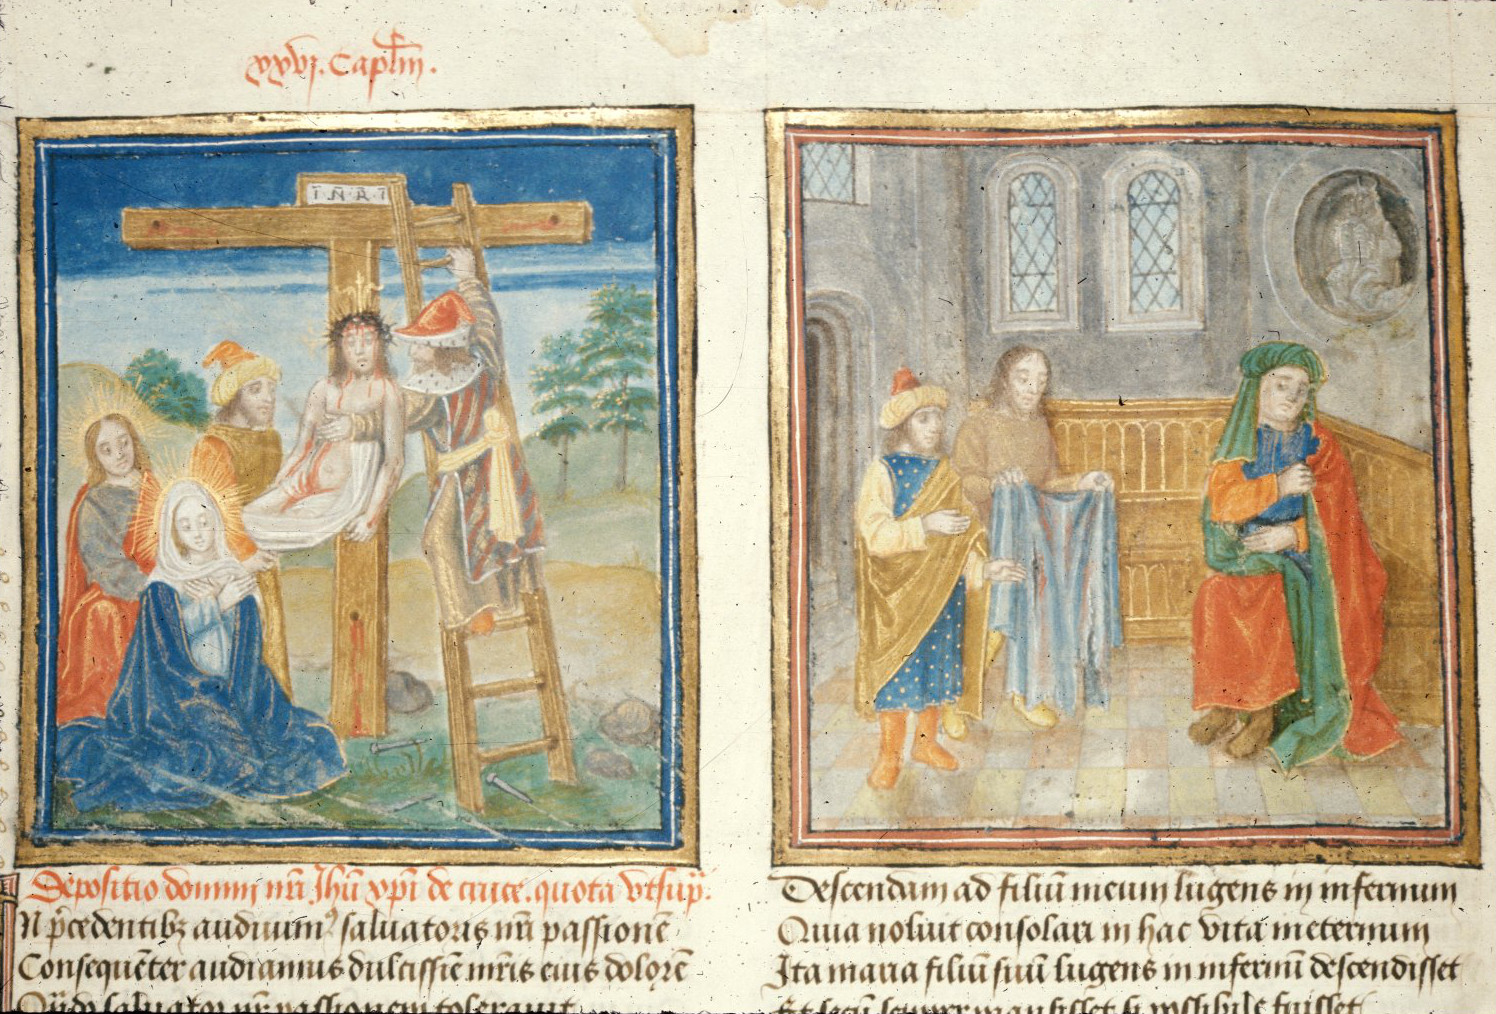 xxvj. Caplm̄.
I N R I
Depositio domini nr̄i Jhū xp̄i de cruce. quota vt sup̄.
IN p̄cedentibꝫ audiuimꝰ saluatoris nr̄i passionē
Consequēter audiamus dulcissiē mr̄is eius dolorē
saluator nr̄ passionem tolerauit
Descendam ad filiū meum lugens in infernum
Quia noluit consolari in hac vita ineternum
Ita maria filiū suū lugens in infernū descendisset
Et secū semper mansisset si possibile fuisset